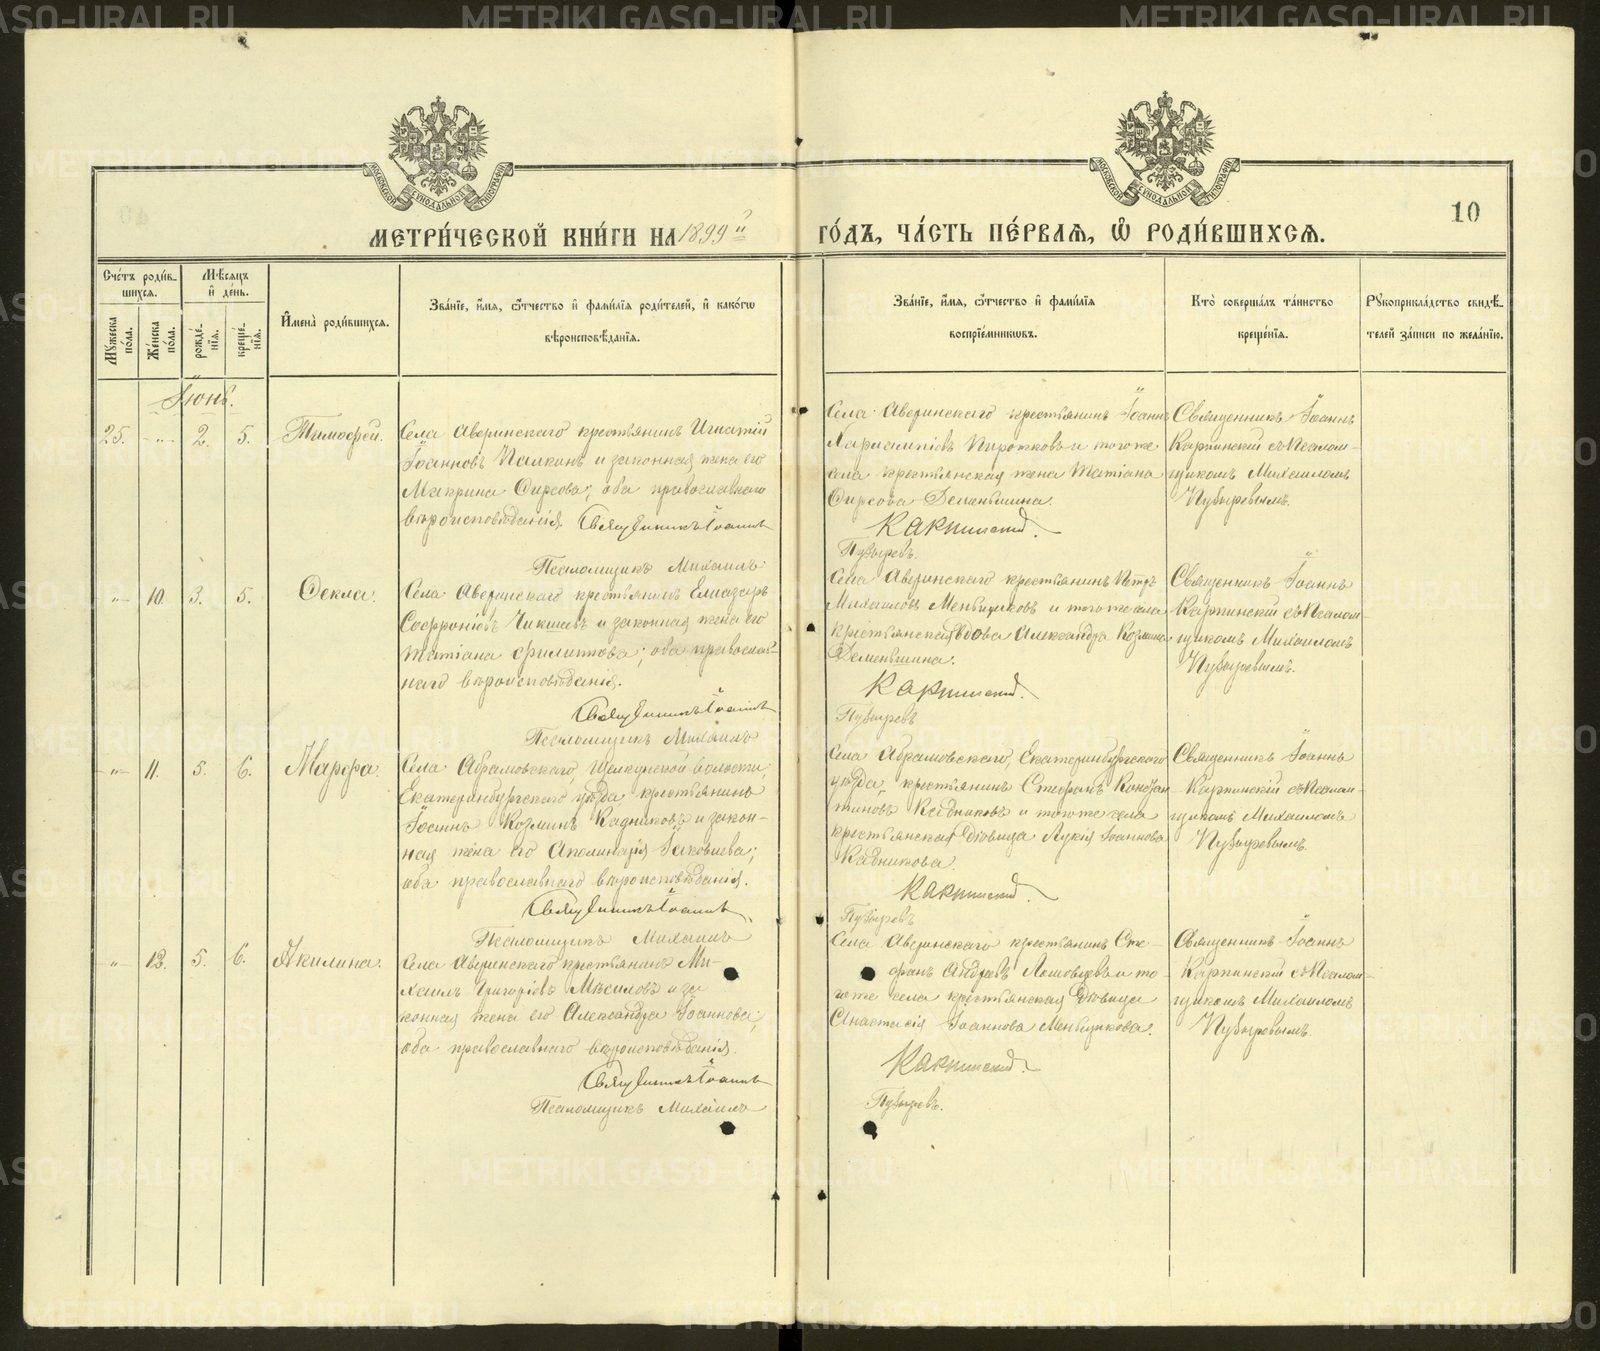 МЕТРИ́ЧЕСКОЙ КНИ́ГИ НА 1899й ГО́ДЪ, ЧА́СТЬ ПЕ́РВАЯ, Ѡ РОДИ́ВШИХСЯ.
10
Сче́тъ роди́в-
шихся.
Мѣсяцъ
и де́нь.
Му́жеска по́ла.
Же́нска по́ла.
рожде́-
нія.
креще́-
нія.
Имена̀ роди́вшихся.
Зва́ніе, и́мя, о́тчество и фами́лія роди́телей, и како́гѡ
вѣроисповѣ́данія.
Зва́ніе, и́мя, о́тчество и фами́лія
воспріе́мникѡвъ.
Кто̀ соверша́лъ та́инство
креще́нія.
Рукоприкла́дство свидѣ́-
телей за́писи по жела́нію.
Іюнь.
25. -"- 2. 5. Тимоѳей.
Села Аверинскаго крестьянинъ Игнатій
Іоанновъ Палкинъ и законная жена его
Макрина Ѳирсова; оба православнаго
вѣроисповѣданія. Священникъ Іоаннъ
Псаломщикъ Михаилъ
Села Аверинскаго крестьянинъ Іоаннъ
Харлампіевъ Пироѵковъ и тогоже
села крестьянская жена Татіана
Ѳирсова Деменьшина.
Карпинскій.
Пузыревъ.
Священникъ Іоаннъ
Карпинскій съ Псалом-
щикомъ Михаиломъ
Пузыревымъ.
-"- 10. 3. 5. Ѳекла.
Села Аверинскаго крестьянинъ Елиазаръ
Софроніевъ Чикишевъ и законная жена его
Татіана Филиппова; оба православ-
наго вѣроисповѣданія.
Священникъ Іоаннъ
Псаломщикъ Михаилъ
Села Аверинскаго крестьянинъ Петръ
Михаиловъ Меньщиковъ и тогоже села
крестьянская вдова Александра Козмина
Деменьшина.
Карпинскій.
Пузыревъ
Священникъ Іоаннъ
Карпинскій съ Псалом-
щикомъ Михаиломъ
Пузыревымъ.
-"- 11. 5. 6. Марѳа.
Села Абрамовскаго, Щелкунской волости,
Екатеринбургскаго уѣзда, крестьянинъ
Іоаннъ Козминъ Кадниковъ и закон-
ная жена его Аполинарія Іаковлева;
оба православнаго вѣроисповѣданія.
Священникъ Іоаннъ
Псаломщикъ Михаилъ
Села Абрамовскаго, Екатеринбургскаго
уѣзда, крестьянинъ Стефанъ Констан
тиновъ Кадниковъ и тогоже села
крестьянская дѣвица Лукія Іоаннова
Кадникова.
Карпинскій.
Пузыревъ
Священникъ Іоаннъ
Карпинскій съ Псалом-
щикомъ Михаиломъ
Пузыревымъ.
-"- 12. 5. 6. Акилина.
Села Аверинскаго крестьянинъ Ми-
хаилъ Григоріевъ и за
конная жена его Александра Іоаннова;
оба православнаго вѣроисповѣданія.
Священникъ Іоаннъ
Псаломщикъ Михаилъ
Села Аверинскаго крестьянинъ Сте-
фанъ Андреевъ и то-
гоже села крестьянская дѣвица
Анастасія Іоаннова Меньщикова.
Карпинскій.
Пузыревъ.
Священникъ Іоаннъ
Карпинскій съ Псалом-
щикомъ Михаиломъ
Пузыревымъ.
METRIKI.GASO-URAL.RU